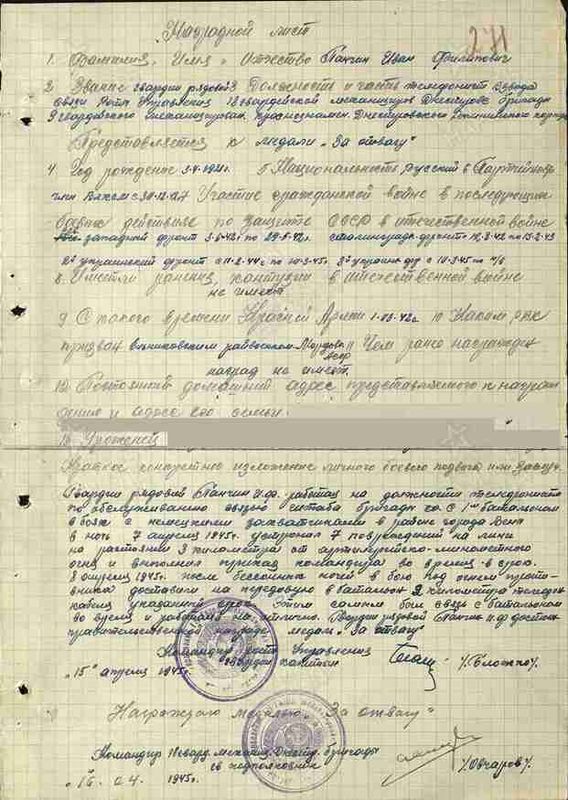 Наградной лист
271
1. Фамилия, Имя, Отчество Панчин Иван Филипович
2. Звание гвардии рядовой 3 Должность и часть телефонист взвода
связи Роты Управления гвардейской механизиров Днестровс бригады
9 гвардейского
Представляется к медали „За отвагу"
4. Год рождение 3.4.1921г. 5 Национальность русский 6 Партийность
член ВЛКСМ с Участие гражданской войне в последующих
боевых действиях по защите СССР в отечественной войне
западный фронт по Сталинград. фронт по
2й украинский фронт с по 3й украин фр с
8. Имел ли ранения, контузии в отечественной войне
не имеет
9. С какого времени Красной Армии 10 Каким РВК
призван райвоенком 11 Чем ранее награжден
АССР
наград не имеет
12. Постоянный домашний адрес представляемого к награж
дению и адрес его семьи:
Уроженец
Краткое конкретное изложение личного боевого подвига или заслуг.
Гвардии рядовой Панчин И.Ф. работая на должности телефониста
по обслуживанию связью штаба бригады с 1ым батальоном
в боях с немецкими захватчиками в районе города Вена
в ночь 7 апреля 1945г. устранил 7 повреждений на линии
на расстоянии 3 километра от артиллерийско-минометного
огня и выполнил приказ командира во время в срок.
8 апреля 1945г. после бессонных ночей в бою под огнем против-
ника доставил на передовую в батальон 2 километра телефон
кабеля указанный срок. Этим самым был связь с батальоном
во время и работала на отлично. Гвардии рядовой Панчин И.Ф. достоин
правительственной награды медаль „За отвагу"
Командир роты Управления
гвардии капитан /Блошко/.
„15" апреля 1945г.
Награждаю медалью „За отвагу"
Командир гвард. механиз. Днестр. бригады
гв подполковник /Овчаров/.
„16" 04. 1945г.